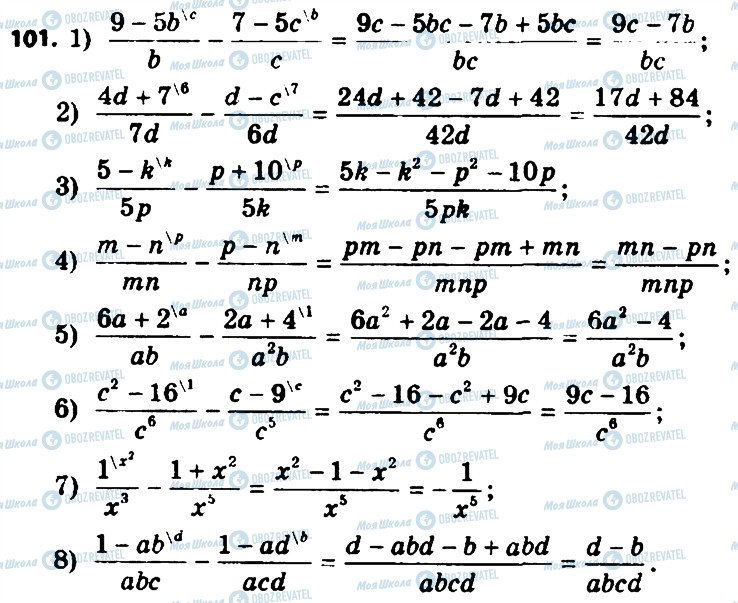 101. 1) (9 − 5b^{\c})/b − (7 − 5c^{\b})/c = (9c − 5bc − 7b + 5bc)/bc = (9c − 7b)/bc;
2) (4d + 7^{\6})/7d − (d − c^{\7})/6d = (24d + 42 − 7d + 42)/42d = (17d + 84)/42d;
3) (5 − k^{\k})/5p − (p + 10^{\p})/5k = (5k − k² − p² − 10p)/5pk;
4) (m − n^{\p})/mn − (p − n^{\m})/np = (pm − pn − pm + mn)/mnp = (mn − pn)/mnp;
5) (6a + 2^{\a})/ab − (2a + 4^{\1})/a²b = (6a² + 2a − 2a − 4)/a²b = (6a² − 4)/a²b;
6) (c² − 16^{\1})/c⁶ − (c − 9^{\c})/c⁵ = (c² − 16 − c² + 9c)/c⁶ = (9c − 16)/c⁶;
7) 1^{\x²}/x³ − (1 + x²)/x⁵ = (x² − 1 − x²)/x⁵ = −1/x⁵;
8) (1 − ab^{\d})/abc − (1 − ad^{\b})/acd = (d − abd − b + abd)/abcd = (d − b)/abcd.
Моя Школа OBOZREVATEL